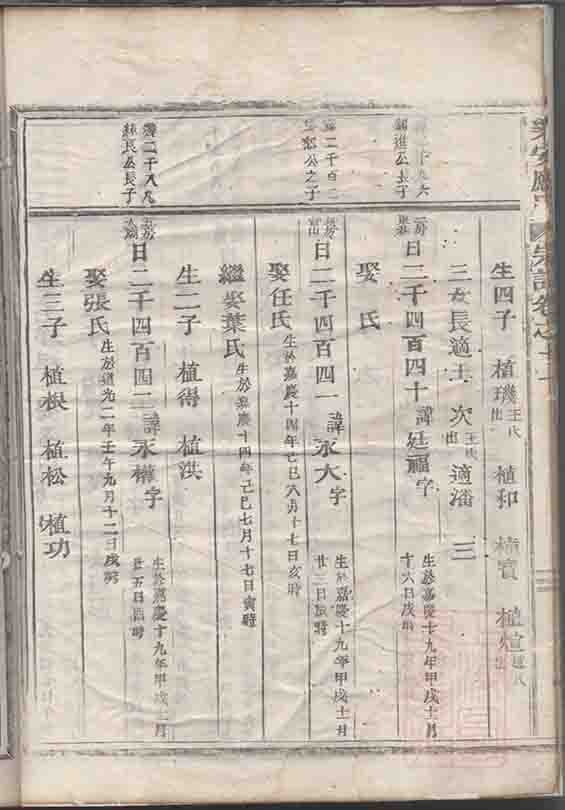 宗譜卷之十
生四子 植璣王氏出 植和 植寶 植煊
三女長適王 次王氏出適潘 三
進公長子
日二千四百四十 諱廷福字 生於嘉慶十九年甲戌十一月十六日戌時
娶 氏
二千
公之子
日二千四百四一 諱永大字 生於嘉慶十九年甲戌十一月廿三日 時
娶任氏 生於嘉慶十四年己巳六月十七日亥時
繼娶葉氏 生於嘉慶十四年己巳七月十七日寅時
生二子 植得 植洪
二千八九
公長子
日二千四百四二 諱永權字 生於嘉慶十九年甲戌十二月廿五日 時
娶張氏 生於道光二年壬午九月十二日戌時
生三子 植根 植松 植功